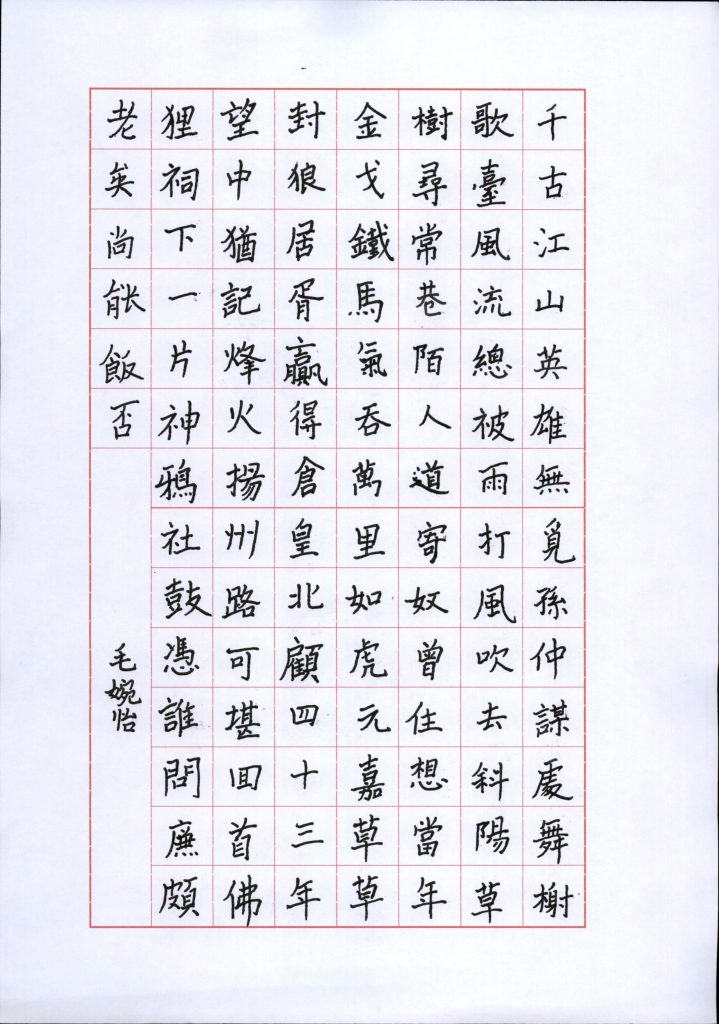 千古江山英雄無覓孫仲謀處舞榭
歌臺風流總被雨打風吹去斜陽草
樹尋常巷陌人道寄奴曾住想當年
金戈鐵馬氣吞萬里如虎元嘉草草
封狼居胥贏得倉皇北顧四十三年
望中猶記烽火揚州路可堪回首佛
狸祠下一片神鴉社鼓憑誰問廉頗
老矣尚能飯否
毛婉怡